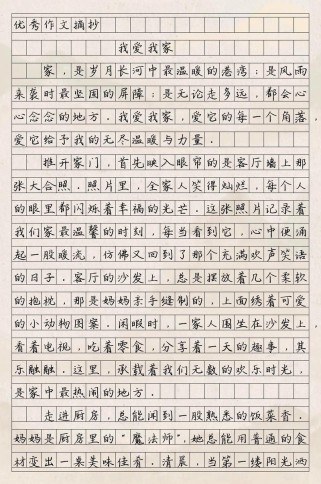 优秀作文摘抄
我爱我家
家，是岁月长河中最温暖的港湾；是风雨
来袭时最坚固的屏障；是无论走多远，都会心
心念念的地方。我爱我家，爱它的每一个角落，
爱它给予我的无尽温暖与力量。
推开家门，首先映入眼帘的是客厅墙上那
张大合照。照片里，全家人笑得灿烂，每个人
的眼里都闪烁着幸福的光芒。这张照片记录着
我们家最温馨的时刻，每当看到它，心中便涌
起一股暖流，仿佛又回到了那个充满欢声笑语
的日子。客厅的沙发上，总是摆放着几个柔软
的抱枕，那是妈妈亲手缝制的，上面绣着可爱
的小动物图案。闲暇时，一家人围坐在沙发上，
看着电视，吃着零食，分享着一天的趣事，其
乐融融。这里，承载着我们无数的欢乐时光，
是家中最热闹的地方。
走进厨房，总能闻到一股熟悉的饭菜香。
妈妈是厨房里的“魔法师”，她总能用普通的食
材变出一桌美味佳肴。清晨，当第一缕阳光洒